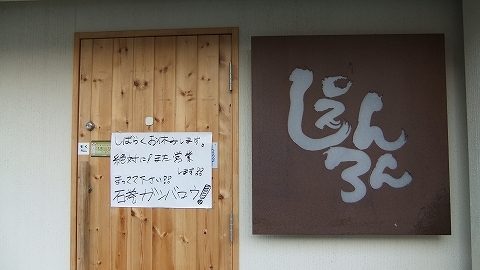 しばらくお休みします。
絶対に!また営業
します!!
まってて下さい!!
石巻ガンバロウ!
じぇん
ろん